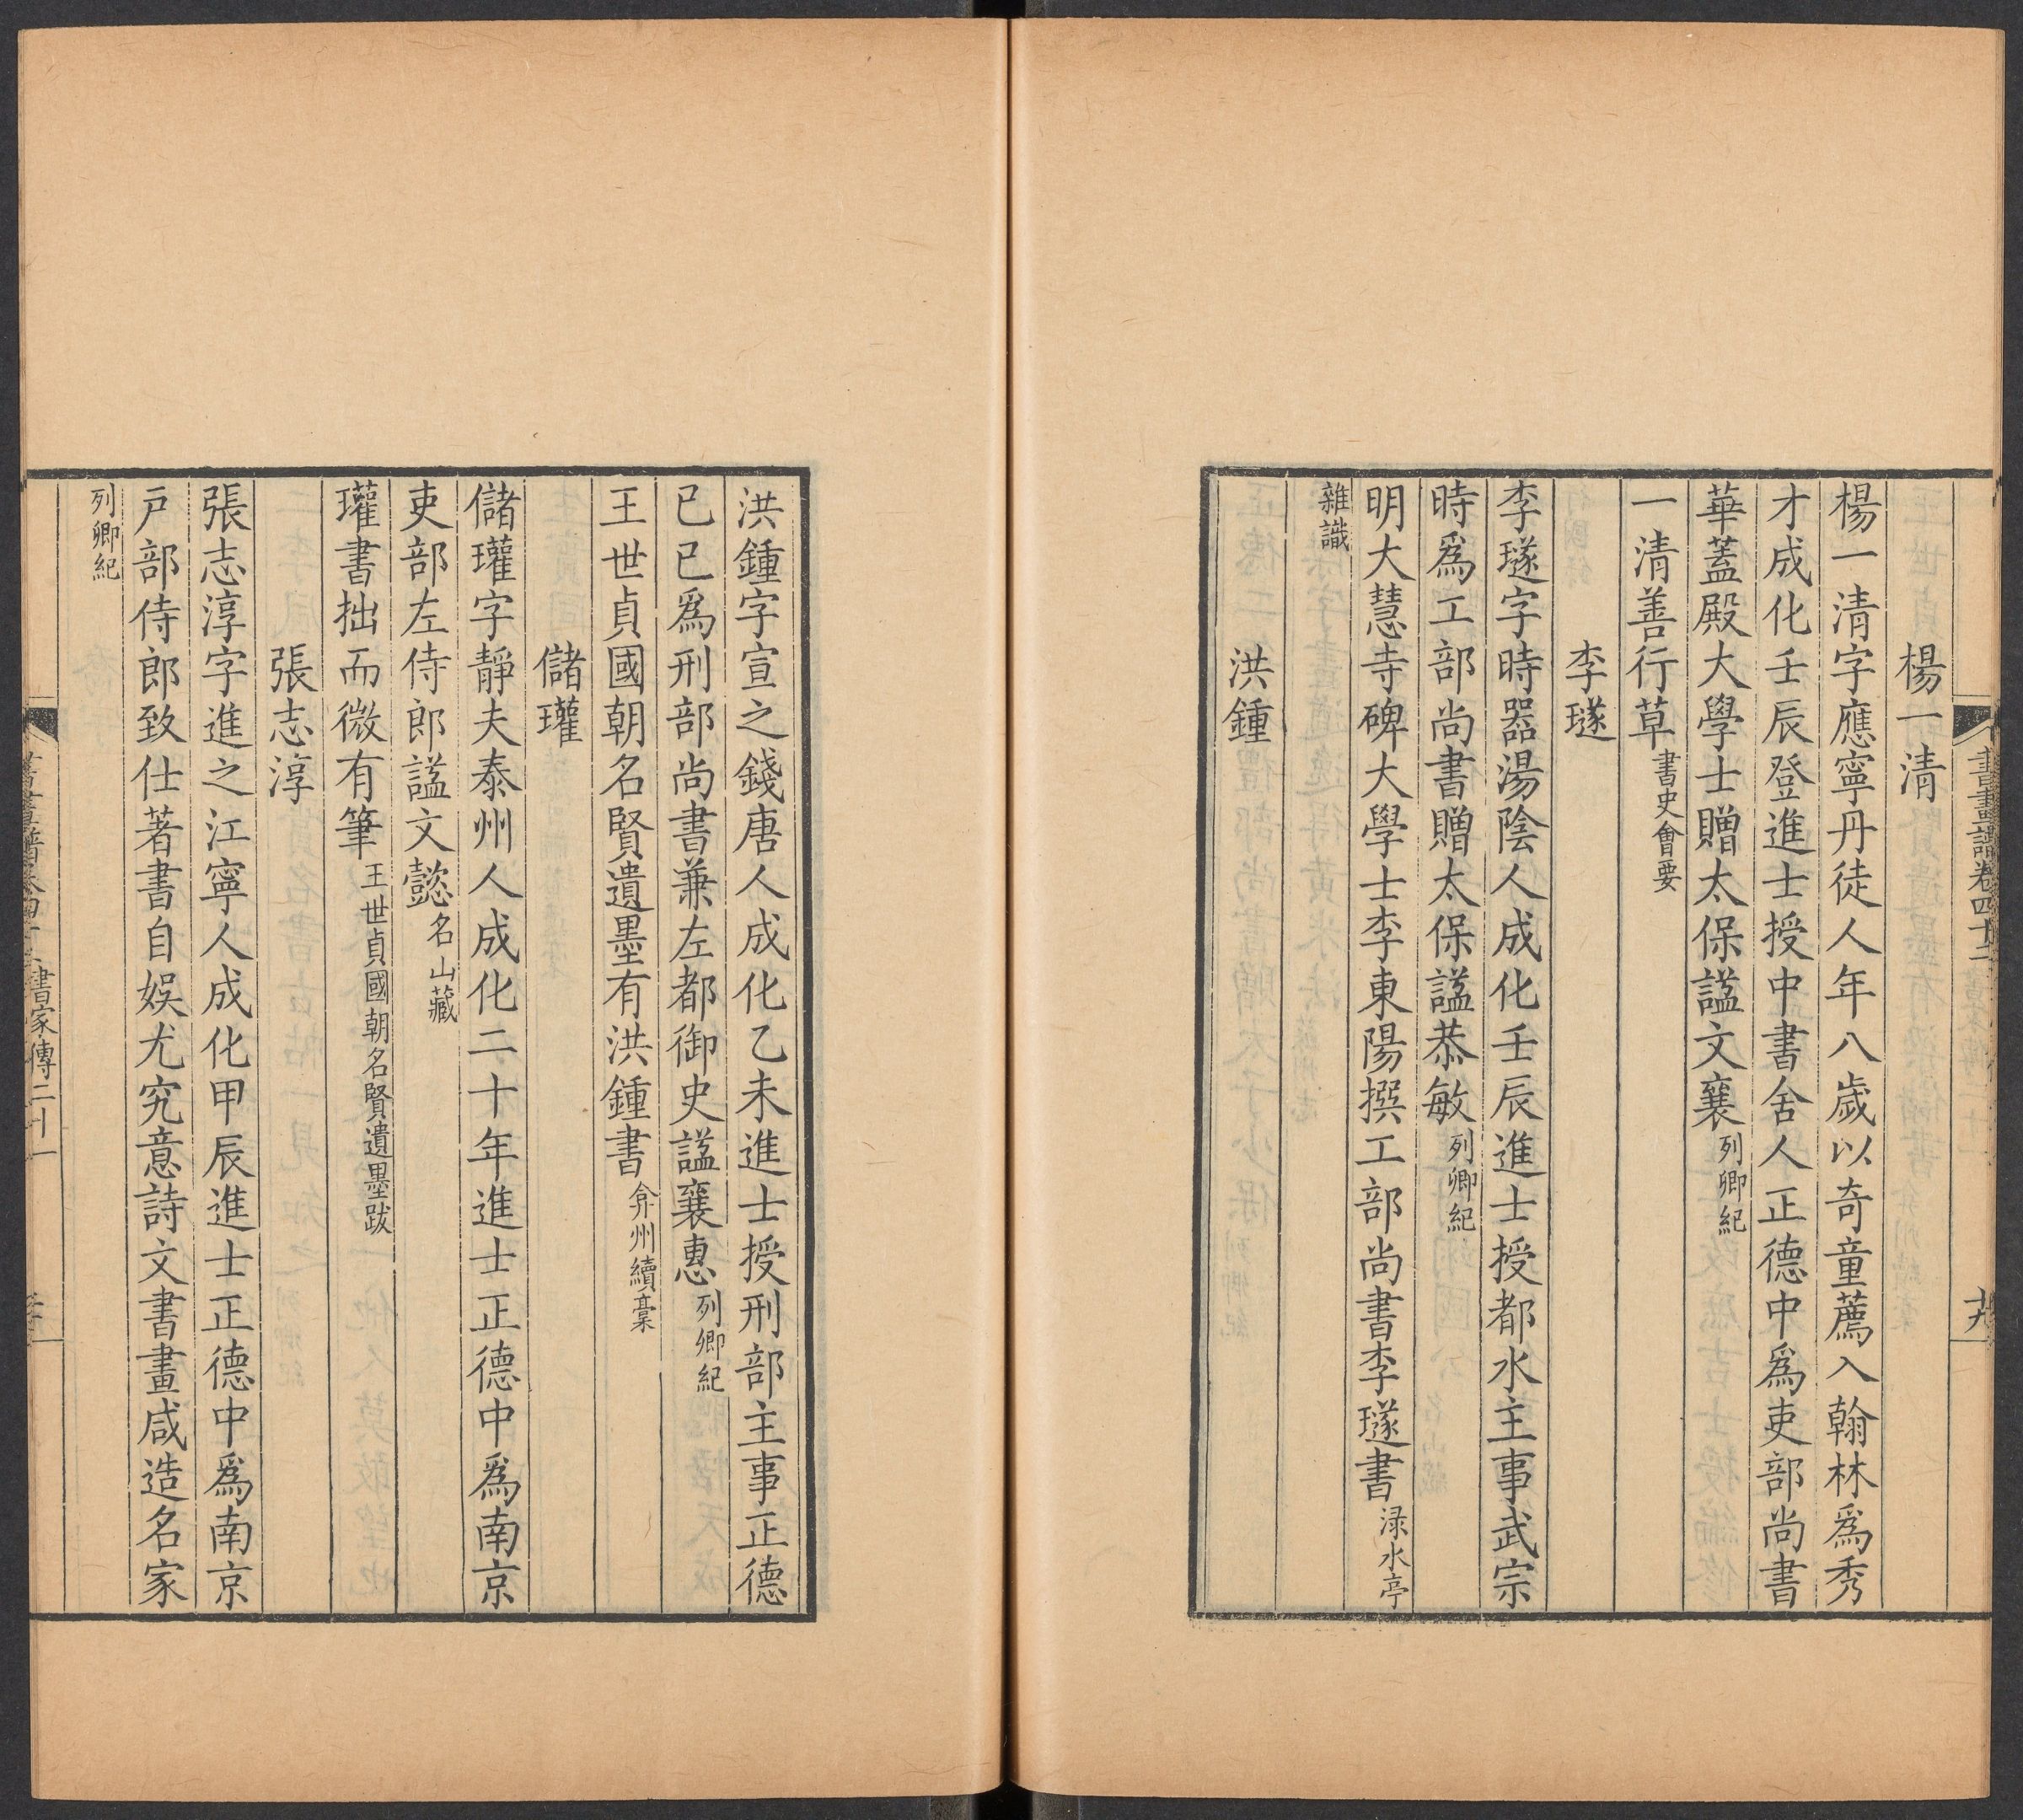 書畫譜卷四十二
十九
楊一清
楊一清字應寧丹徒人年八歲以奇童薦入翰林爲秀
才成化壬辰登進士授中書舍人正德中爲吏部尚書
華蓋殿大學士贈太保諡文襄列卿紀
一清善行草書史會要
李鐩
李鐩字時器湯陰人成化壬辰進士授都水主事武宗
時爲工部尚書贈太保諡恭敏列卿紀
明大慧寺碑大學士李東陽撰工部尚書李鐩書渌水亭
雜識
洪鍾
洪鍾字宣之錢唐人成化乙未進士授刑部主事正德
己巳爲刑部尚書兼左都御史諡襄惠列卿紀
王世貞國朝名賢遺墨有洪鍾書弇州續藁
儲瓘
儲瓘字靜夫泰州人成化二十年進士正德中爲南京
吏部左侍郎諡文懿名山藏
瓘書拙而微有筆王世貞國朝名賢遺墨跋
張志淳
張志淳字進之江寧人成化甲辰進士正德中爲南京
戶部侍郎致仕著書自娛尤究意詩文書畫咸造名家
列卿紀
書家傳二十一